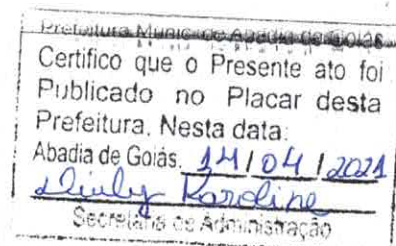 Prefeitura Munic. de Abadia de Goiás
Certifico que o Presente ato foi
Publicado no Placar desta
Prefeitura. Nesta data:
Abadia de Goiás. 14/04/2021
Karoline
Secretaria de Administração